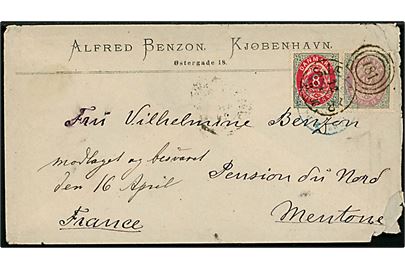 ALFRED BENZON. KJØBENHAVN.
Østergade 18.
DANMARK
8
181
Fru Vilhelmine Benzon
modtaget og besvaret
den 16 April
Pension du Nord
France
Mentone